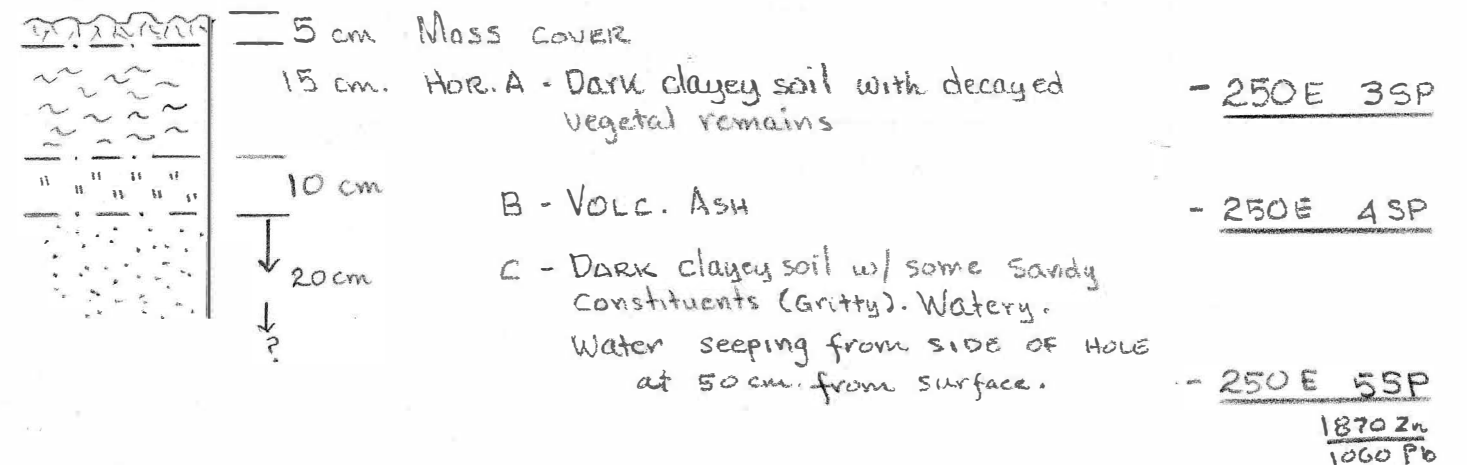 5 cm Moss COVER
15 cm. HOR. A - Dark clayey soil with decayed - 250E 3SP
vegetal remains
10 cm
B - VOLC. ASH - 250E 4SP
20 cm C - DARK clayey soil w/ some Sandy
constituents (Gritty). Watery.
? Water seeping from SIDE OF HOLE
at 50 cm. from surface. - 250E 5SP
1870 Zn
1060 Pb